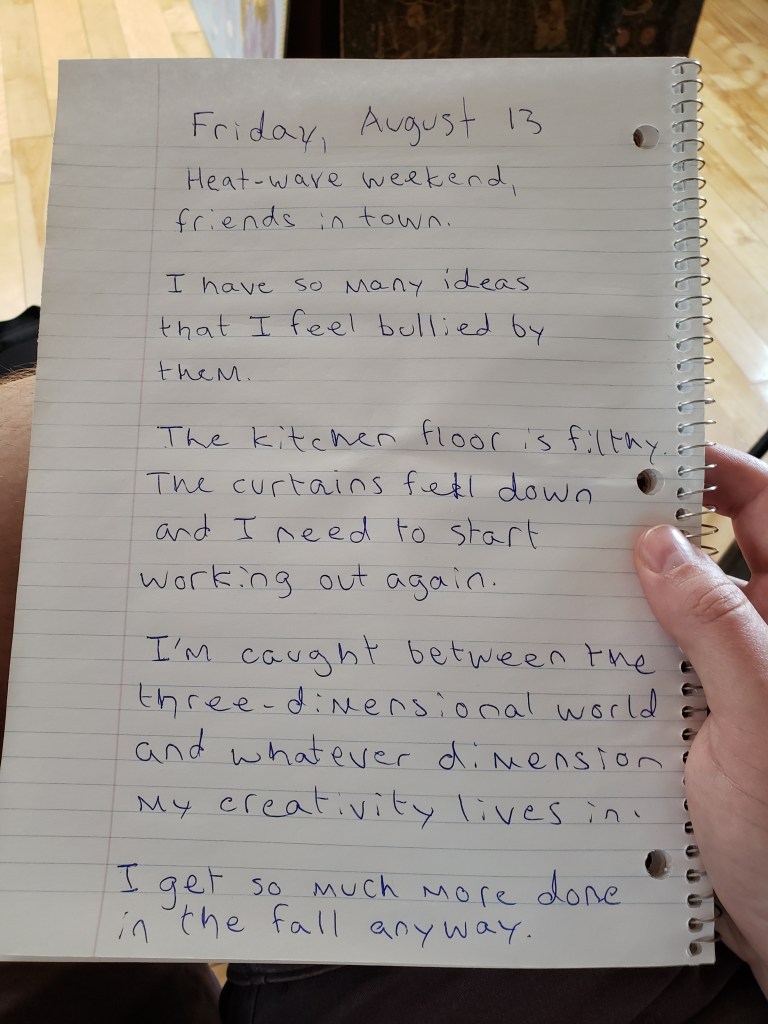 Friday, August 13
Heat-wave weekend,
friends in town.
I have so many ideas
that I feel bullied by
them.
The kitchen floor is filthy.
The curtains fell down
and I need to start
working out again.
I'm caught between the
three-dimensional world
and whatever dimension
my creativity lives in.
I get so much more done
in the fall anyway.